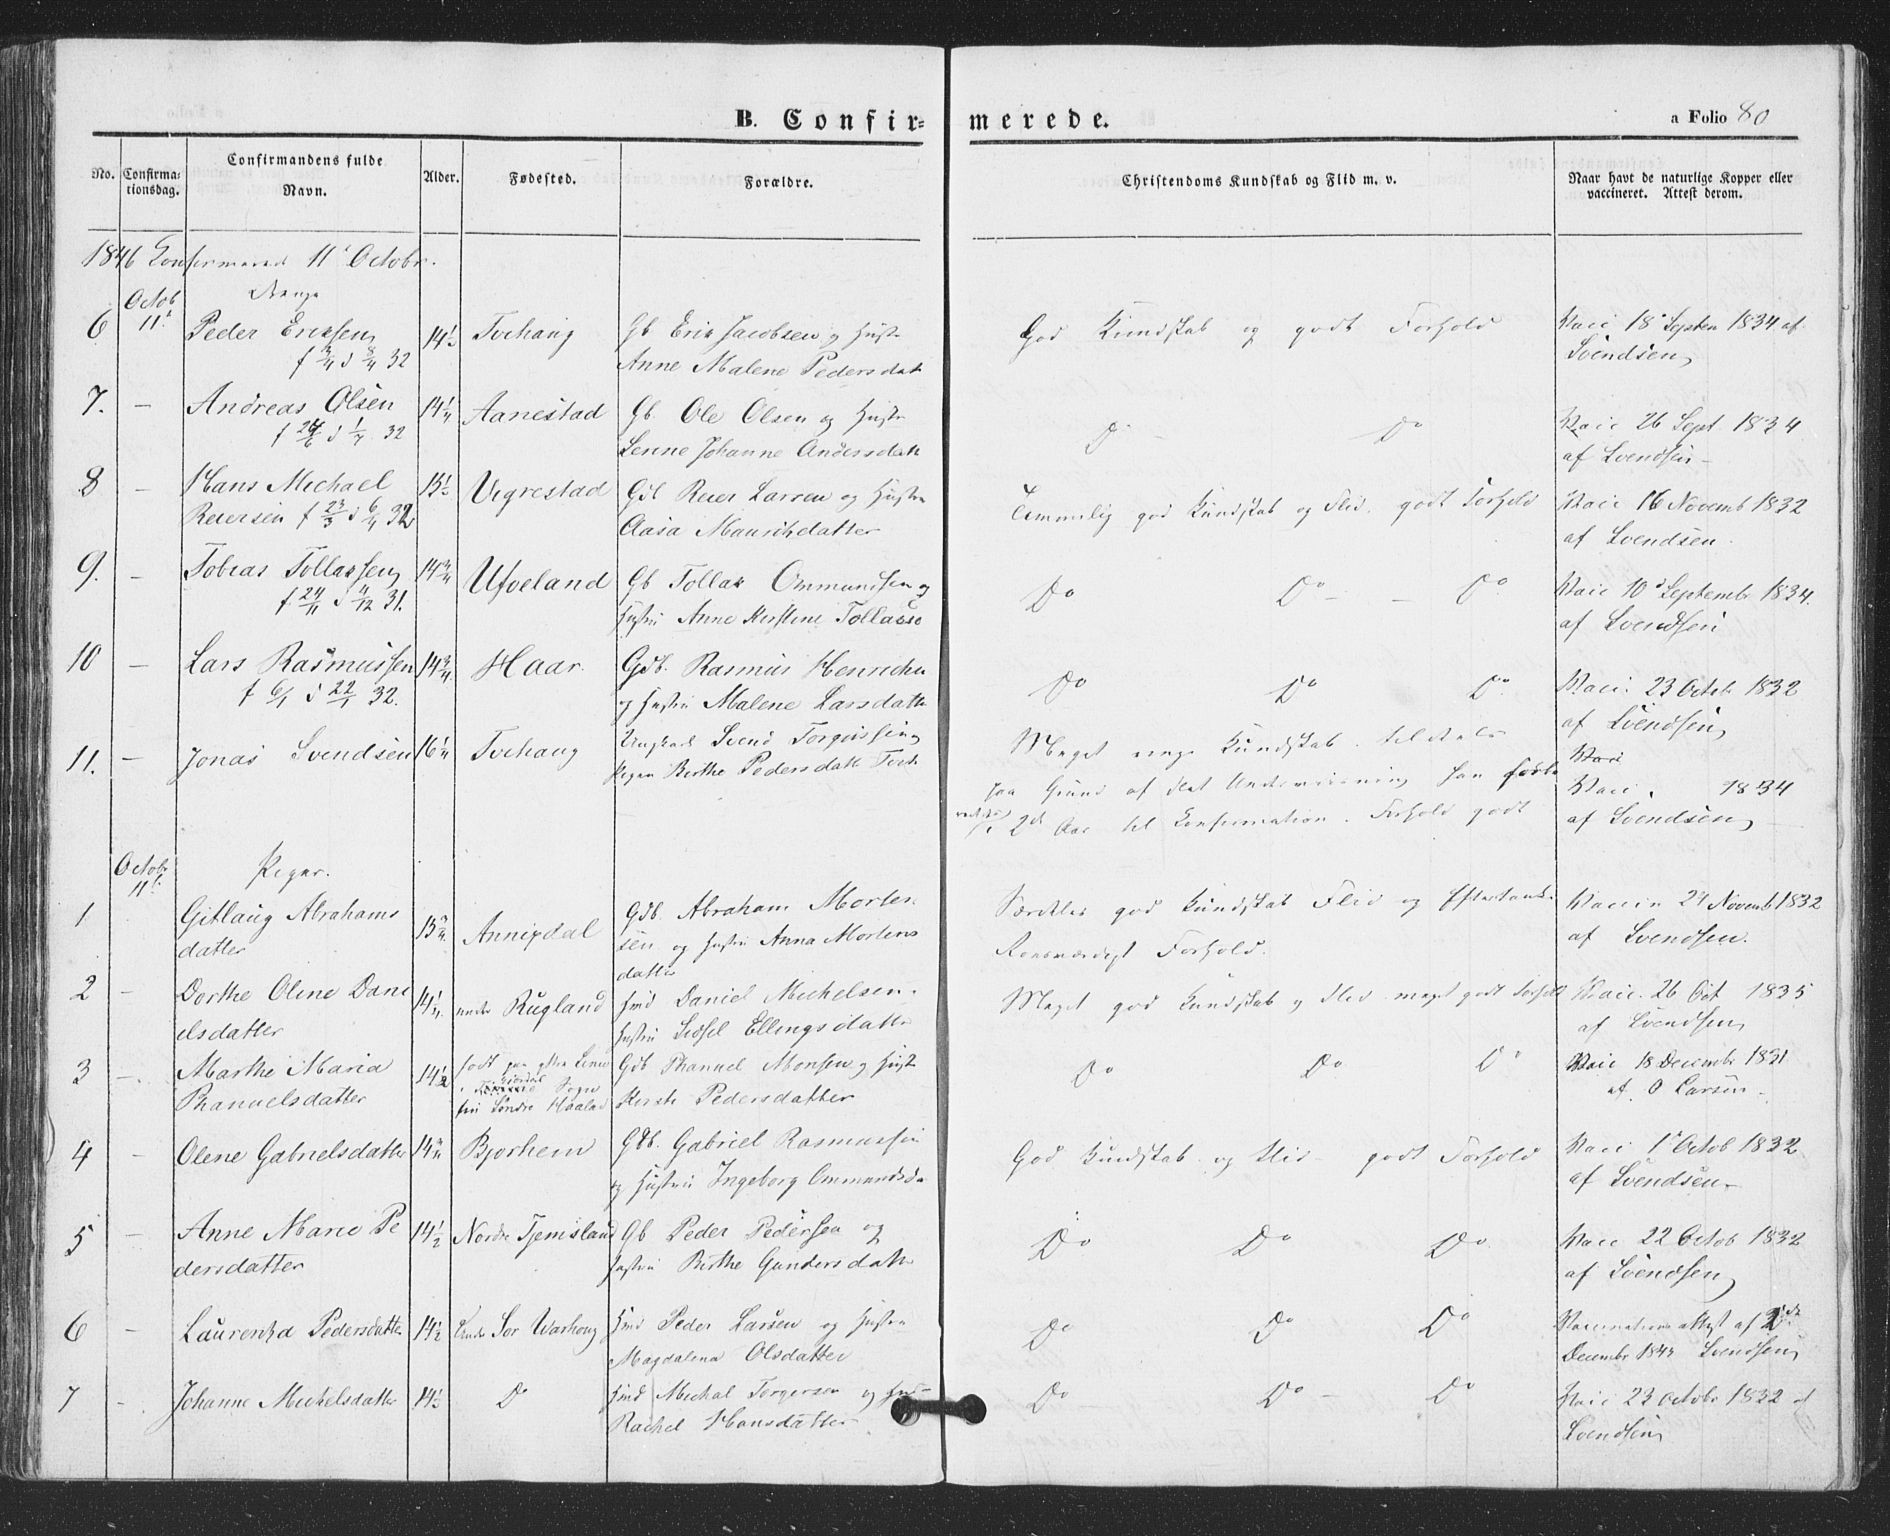 B. Confir=
merede.
a Folio 80
No.
Confirma-
tionsdag.
Confirmandens fulde
Navn.
Alder.
Fødested.
Forældre.
Christendoms Kundskab og Flid m. v.
Naar havt de naturlige Kopper eller
vaccineret. Attest derom.
1846 Confirmered 11t Octobr.
Drenge
6 Octob 11t Peder Eriksen 14½ Tvihaug Gb Erik Jacobsen og Hustr God Kundskab og godt Forhold Vacc 18 Septem 1834 af
f 3/4 d 8/4 32 Anne Malene Pedersdatt Svendsen
7. — Andreas Olsen 14¼ Aanestad Gb. Ole Olsen og Hustr Do — Do Vacc 26 Sept 1834
d 1/7 32 Lenne Johanne Andersdatt af Svendsen
8 — Hans Michael 15½ Vigrestad Gdb Reier Larsen og Hustru Temmelig god Kundskab og Flid. godt Forhold Vacc 16 Novemb 1832
Reiersen f 23/3 d 6/4 32 Aasa Mauritzdatter af Svendsen.
9. — Tobias Tollaksen 14¾ Ufveland Gb Tollak Ommundsen og Do Do — Do Vacc 10d Septembr 1834.
f. 24/11 d 4/12 31. Hustru Anne Kirstine Tollagsd af Svendsen
10 — Lars Rasmussen 14¾ Haar Gdb. Rasmus Henrichs Do Do Do Vacc. 23 Octob 1832
f 6/1 d 22/1 32. og Hustru Malene Larsdatt af Svendsen
11. — Jonas Svendsen 16¼ Tvihaug Ungkarl Svend Torgersen og Meget ringe Kundskab.
Pigen Berthe Pedersdatt paa Grund af slet Underviisning han
Vacc. 1834
2d Aar til Confirmation. Forhold godt af Svendsen
Octobr 11t. Piger.
1 Gitlaug Abrahams 15¾ Annixdal Gdb. Abraham Morten Særdeles god Kundskab Flid og Eftertanke Vaccin 24 Novemb 1832
datter sen og Hustru Anna Mortens Roesværdigt Forhold. af Svendsen.
datter
2 — Dorthe Oline Dani 14¼ under Rugland Hmd Daniel Michelsen. Meget god Kundskab og Flid. meget godt Forhold Vacc. 26 Oct 1835
elsdatter Hustru Sidsel Ellingsdatter af Svendsen
3 — Marthe Maria 14½ født paa Gdb Phanuel Monsen og Hustr Do Do Do Vacc 18 Decembr 1831
Phanuelsdatter Sogn Kirste Pedersdatter af. O Larsen
Søndre Haaland
4 — Olene Gabrielsdatter 14¾ Bjorhem Gdb. Gabriel Rasmussen God Kundskab og Flid — godt Forhold Vacc 1t Octob 1832
og Hustru Ingeborg Ommundsda af Svendsen
5 Anne Marie Pe 14½ Nordre Tjemsland Gb Peder Pedersen og Do Do Do. Vacc 22 Octob 1832
dersdatter Hustru Berthe Gundersdatter af Svendsen
6 — Laurentza Pedersdatter 14½ Under Sør Warhoug Hmd Peder Larsen og Hustru Do Do Do Vaccinationsattest af 2de
Magdalena Olsdatter Decembr Svendsen
7 — Johanne Michelsdatter 14½ Do Hmd Michal Torgersen og Hus Do Do — Do Vacc 23 Octobr 1832 af
Rachel Hansdatter Svendsen